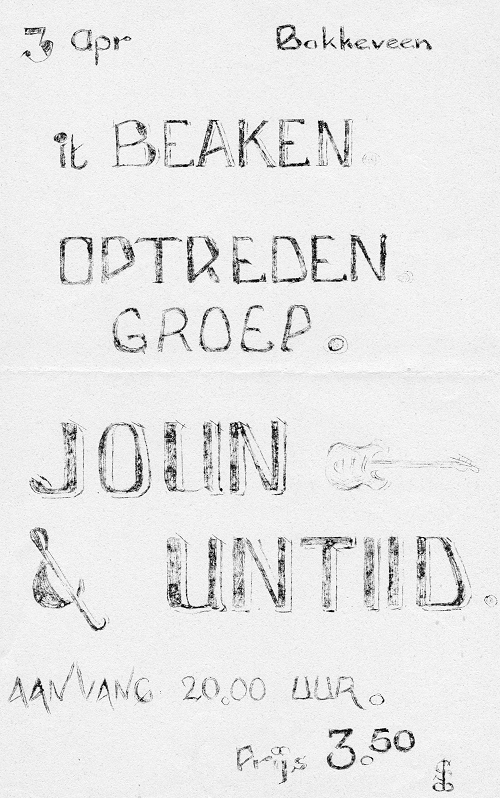 3 apr Bakkeveen
it BEAKEN.
OPTREDEN.
GROEP.
JOUN
& UNTIID.
AANVANG 20.00 UUR.
Prijs 3.50